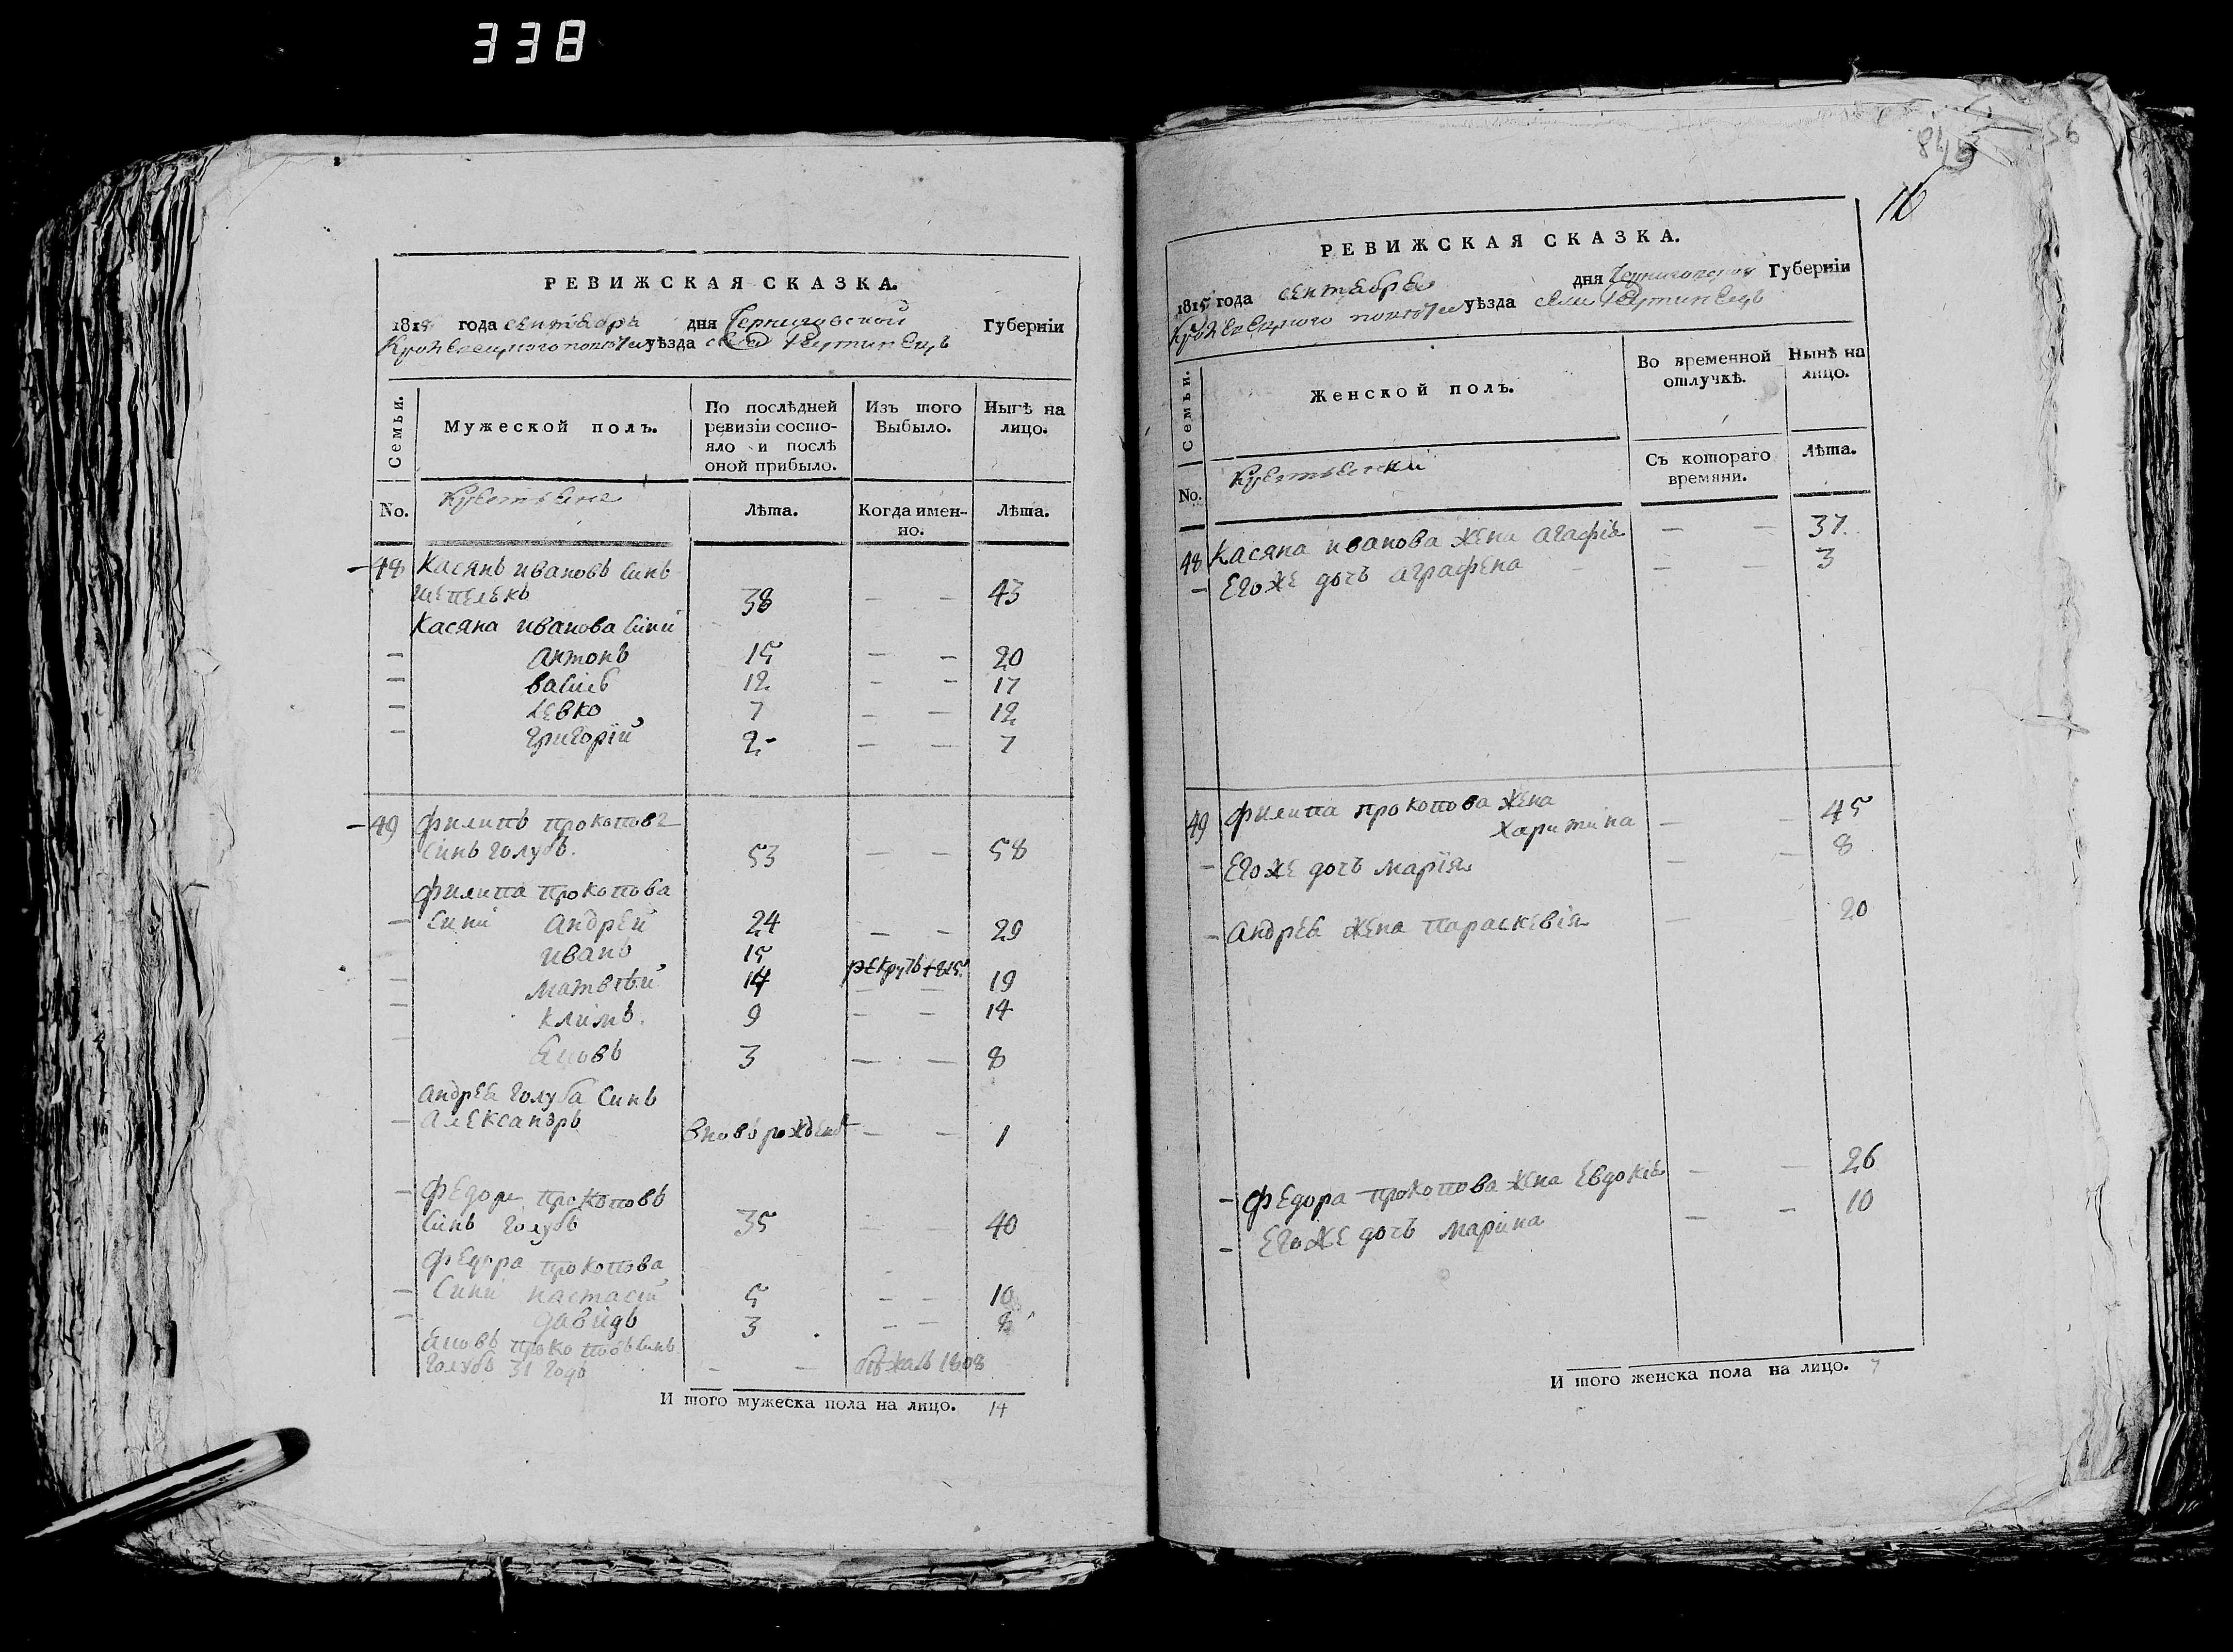 338
РЕВИЖСКАЯ СКАЗКА.
1815 года сентабра дня Черниговской Губерніи
Кролевецкого повѣту уѣзда села Реутинецъ
Семьи.
Мужеской полъ.
По послѣдней ревизіи состо-
яло и послѣ
оной прибыло.
Изъ того
Выбыло.
Нынѣ на
лицо.
No.
Крестьяне
Лѣта.
Когда имен-
но.
Лѣта.
48 Касянъ ивановъ синъ
шепелекъ 38 — — 43
Касяна иванова сини
— антонъ 15 — — 20
— василь 12 — — 17
— левко 7 — — 12
— григорій 2 — — 7
49 филипъ прокоповъ
синъ голубъ. 53 — — 58
филипа прокопова
— сини андрей 24 — — 29
иванъ 15 рекрутъ 1815
— матвѣй 14 — — 19
— климъ. 9 — — 14
— яковъ 3 — — 8
андрея голуба синъ
— александръ вновь рожденъ — — 1
— федоръ прокоповъ
синъ голубъ 35 — — 40
федора прокопова
— сини настасій 5 — — 10
— давидъ 3 — — 8
яковъ прокоповъ синъ
голубъ 31 годъ — — бѣжалъ 1808
И того мужеска пола на лицо. 14
16
РЕВИЖСКАЯ СКАЗКА.
1815 года сентабра дня Черниговской Губерніи
Кролевецкого повѣту уѣзда села Реутинецъ
Семьи.
Женской полъ.
Во временной
отлучкѣ.
Нынѣ на
лицо.
No.
Крестьянки
Съ котораго
времяни.
Лѣта.
48 Касяна иванова жена агафія — — 37.
— Егоже дочь аграфена — — 3
49 филипа прокопова жена
харитина — — 45
— Егоже дочь марія — — 8
— андрея жена параскевія — — 20
— федора прокопова жена Евдокія — — 26
— Егоже дочь марина — — 10
И того женска пола на лицо. 7